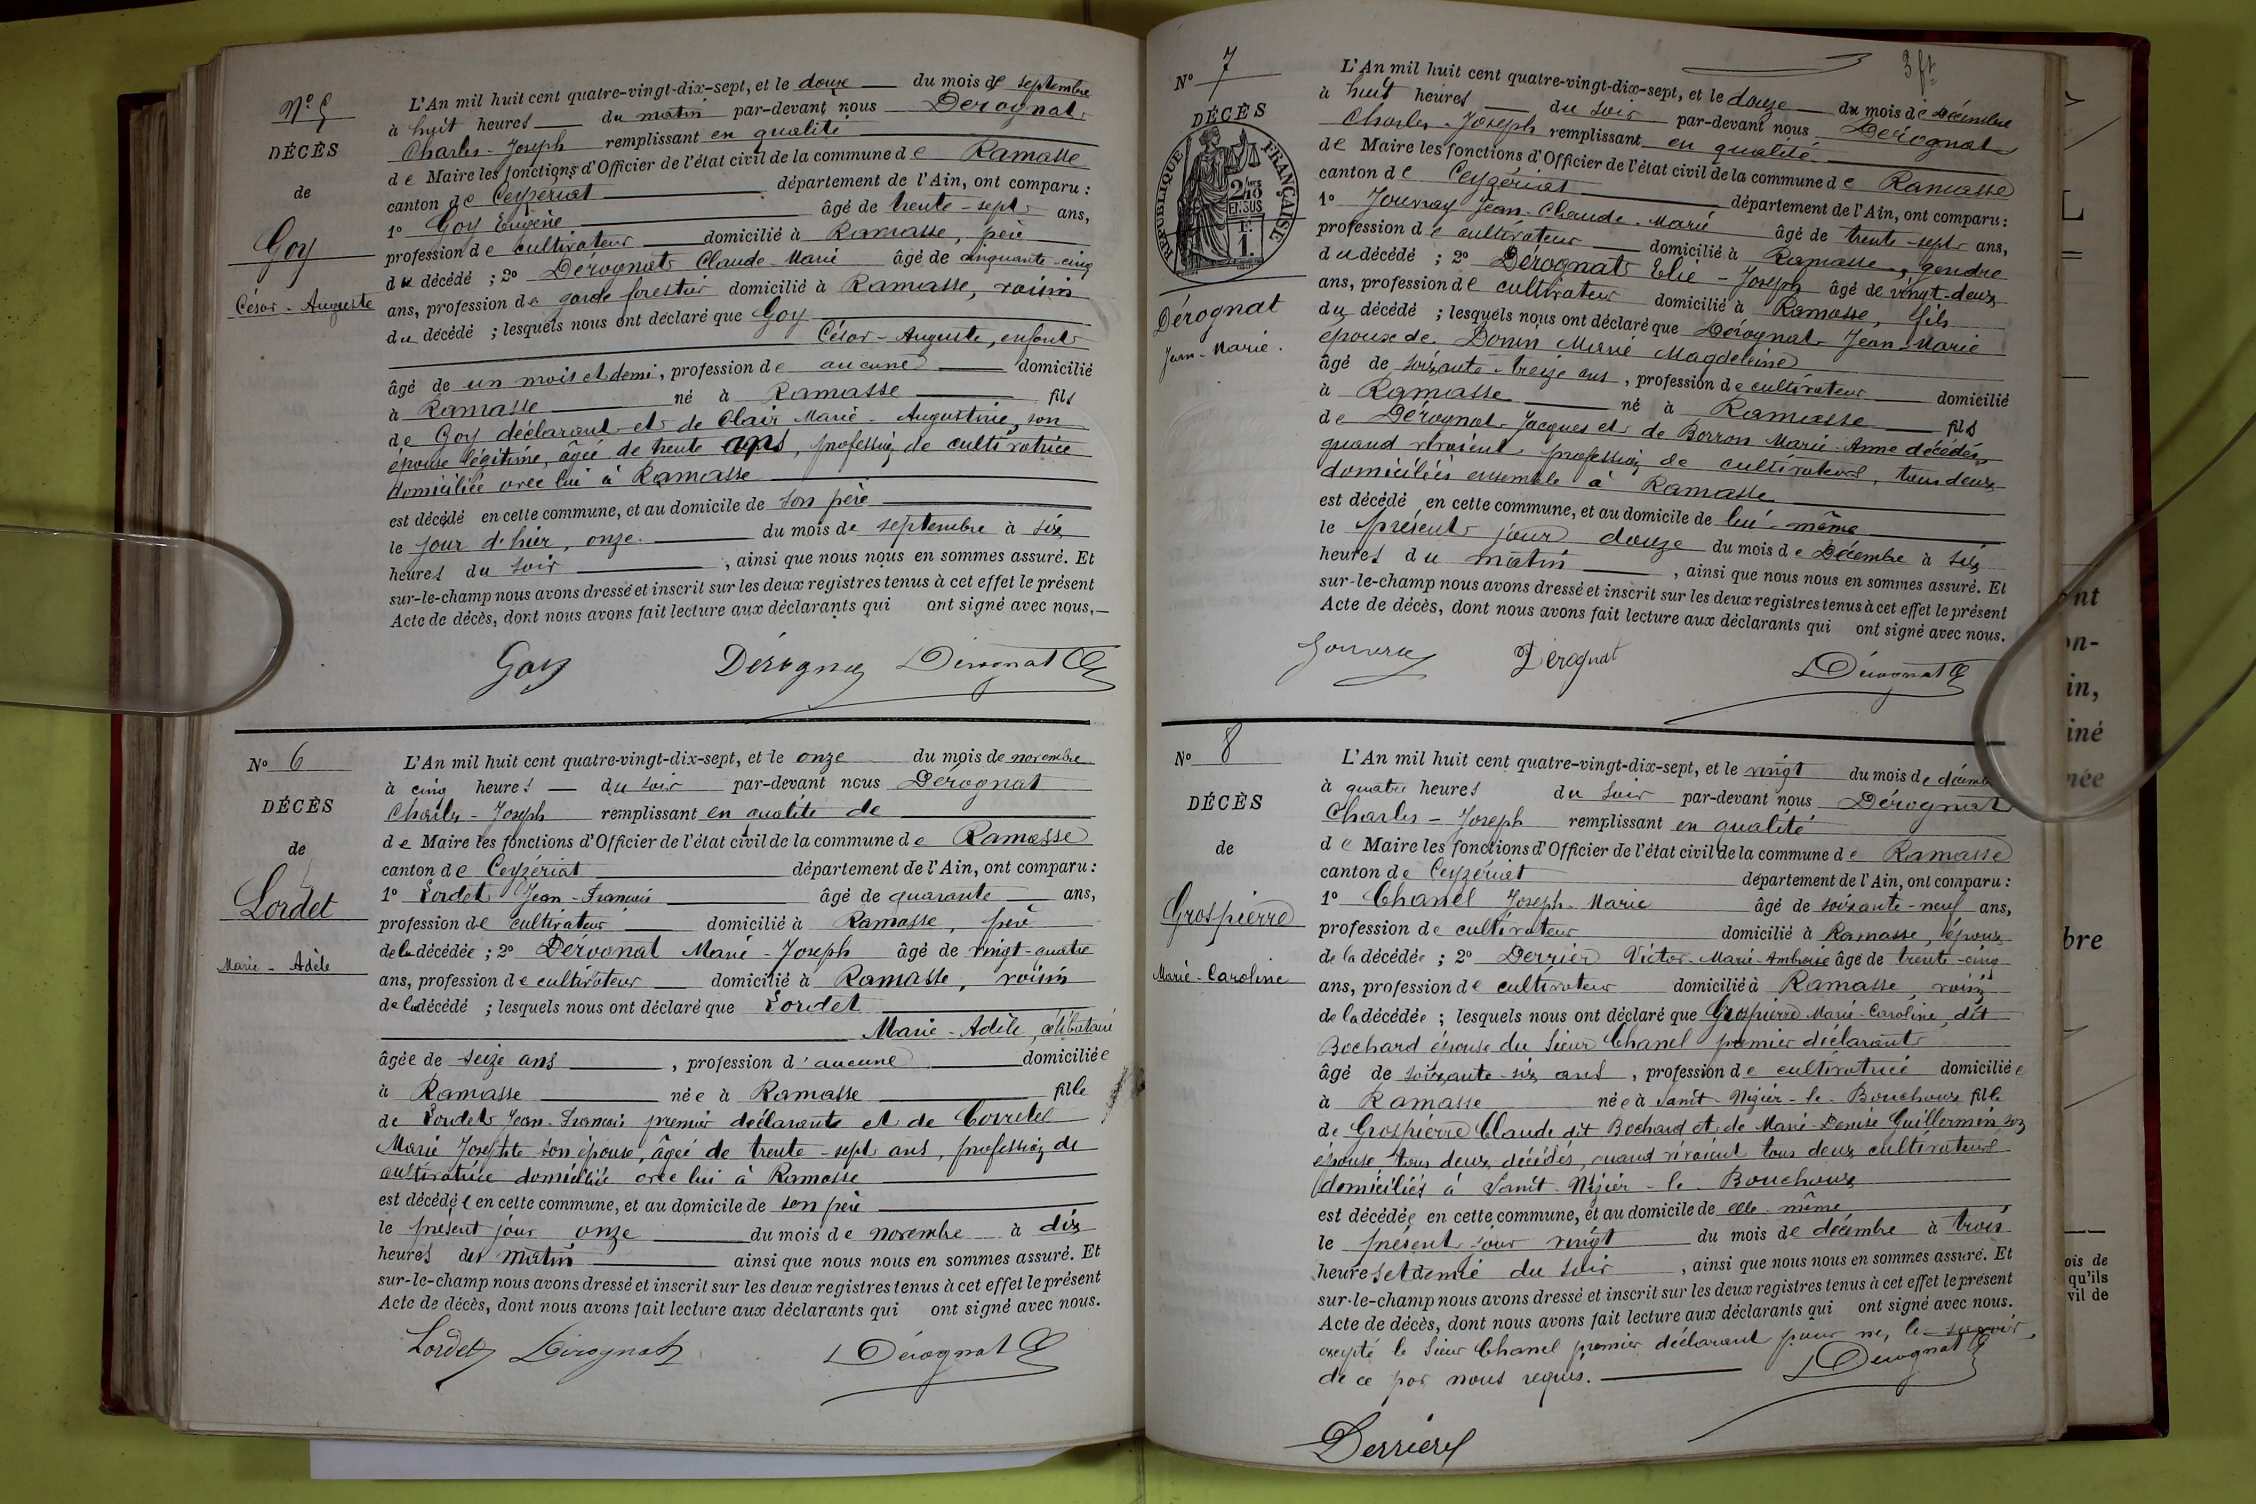 N° 5
DÉCÈS
de
Goy
César - Auguste
L'An mil huit cent quatre-vingt-dix-sept, et le douze du mois de septembre
à huit heures du matin par-devant nous Dérognat
Charles-Joseph remplissant en qualité
de Maire les fonctions d'Officier de l'état civil de la commune de Ramasse
canton de Ceyzériat département de l'Ain, ont comparu :
1° Goy Eugène âgé de trente-sept ans,
profession de cultivateur domicilié à Ramasse, père
du décédé ; 2° Dérognat Claude-Marie âgé de cinquante-cinq
ans, profession de garde forestier domicilié à Ramasse, voisin
du décédé ; lesquels nous ont déclaré que Goy
César-Auguste, enfant
âgé de un mois et demi, profession de aucune domicilié
à Ramasse né à Ramasse fils
de Goy déclarant et de Clair Marie-Augustine, son
épouse légitime, âgée de trente ans, profession de cultivatrice
domiciliée avec lui à Ramasse
est décédé en cette commune, et au domicile de son père
le jour d'hier, onze du mois de septembre à six
heures du soir, ainsi que nous nous en sommes assuré. Et
sur-le-champ nous avons dressé et inscrit sur les deux registres tenus à cet effet le présent
Acte de décès, dont nous avons fait lecture aux déclarants qui ont signé avec nous.
Goy Dérognat Dérognat
N° 6
DÉCÈS
de
Lordet
Marie - Adèle
L'An mil huit cent quatre-vingt-dix-sept, et le onze du mois de novembre
à cinq heures du soir par-devant nous Dérognat
Charles-Joseph remplissant en qualité de
de Maire les fonctions d'Officier de l'état civil de la commune de Ramasse
canton de Ceyzériat département de l'Ain, ont comparu :
1° Lordet Jean-François âgé de quarante ans,
profession de cultivateur domicilié à Ramasse, père
de la décédée ; 2° Dérognat Marie-Joseph âgé de vingt-quatre
ans, profession de cultivateur domicilié à Ramasse, voisin
de la décédé ; lesquels nous ont déclaré que Lordet
Marie-Adèle, célibataire
âgée de seize ans, profession d'aucune domiciliée
à Ramasse née à Ramasse fille
de Lordet Jean-François premier déclarant et de
Marie Josephte son épouse, âgée de trente-sept ans, profession de
cultivatrice domiciliée avec lui à Ramasse
est décédée en cette commune, et au domicile de son père
le présent jour onze du mois de novembre à dix
heures du matin ainsi que nous nous en sommes assuré. Et
sur-le-champ nous avons dressé et inscrit sur les deux registres tenus à cet effet le présent
Acte de décès, dont nous avons fait lecture aux déclarants qui ont signé avec nous.
Lordet Dérognat Dérognat
N° 7
DÉCÈS
RÉPUBLIQUE FRANÇAISE
Dérognat
Jean-Marie.
3 ft
L'An mil huit cent quatre-vingt-dix-sept, et le douze du mois de décembre
à huit heures du soir par-devant nous Dérognat
Charles-Joseph remplissant en qualité
de Maire les fonctions d'Officier de l'état civil de la commune de Ramasse
canton de Ceyzériat département de l'Ain, ont comparu :
1° Jouvray Jean-Claude-Marie âgé de trente-sept ans,
profession de cultivateur domicilié à Ramasse, gendre
du décédé ; 2° Dérognat Elie-Joseph âgé de vingt-deux
ans, profession de cultivateur domicilié à Ramasse, fils
du décédé ; lesquels nous ont déclaré que Dérognat Jean-Marie
époux de Donin Marie Magdeleine
âgé de soixante-treize ans, profession de cultivateur domicilié
à Ramasse né à Ramasse fils
de Dérognat Jacques et de Borron Marie-Anne décédés,
quand vivaient profession de cultivateurs, tous deux
domiciliés ensemble à Ramasse
est décédé en cette commune, et au domicile de lui-même
le présent jour douze du mois de Décembre à six
heures du matin, ainsi que nous nous en sommes assuré. Et
sur-le-champ nous avons dressé et inscrit sur les deux registres tenus à cet effet le présent
Acte de décès, dont nous avons fait lecture aux déclarants qui ont signé avec nous.
Dérognat Dérognat
N° 8
DÉCÈS
de
Grospierre
Marie-Caroline
L'An mil huit cent quatre-vingt-dix-sept, et le vingt du mois de décembre
à quatre heures du soir par-devant nous Dérognat
Charles-Joseph remplissant en qualité
de Maire les fonctions d'Officier de l'état civil de la commune de Ramasse
canton de Ceyzériat département de l'Ain, ont comparu :
1° Chanel Joseph-Marie âgé de soixante-neuf ans,
profession de cultivateur domicilié à Ramasse, époux
de la décédée ; 2° Derrier Victor-Marie-Ambroise âgé de trente-cinq
ans, profession de cultivateur domicilié à Ramasse, voisin
de la décédée ; lesquels nous ont déclaré que Grospierre Marie-Caroline, dit
Bochard épouse du Sieur Chanel premier déclarant
âgé de soixante-six ans, profession de cultivatrice domiciliée
à Ramasse née à Saint-Nizier-le-Bouchoux fille
de Grospierre Claude dit Bochard et de Marie-Denise Guillermin son
épouse tous deux décédés, quand vivaient tous deux cultivateurs
domiciliés à Saint-Nizier-le-Bouchoux
est décédée en cette commune, et au domicile de elle-même
le présent jour vingt du mois de décembre à trois
heures et demie du soir, ainsi que nous nous en sommes assuré. Et
sur-le-champ nous avons dressé et inscrit sur les deux registres tenus à cet effet le présent
Acte de décès, dont nous avons fait lecture aux déclarants qui ont signé avec nous.
excepté le Sieur Chanel premier déclarant pour ne, le savoir,
de ce par nous requis. Dérognat
Derrier